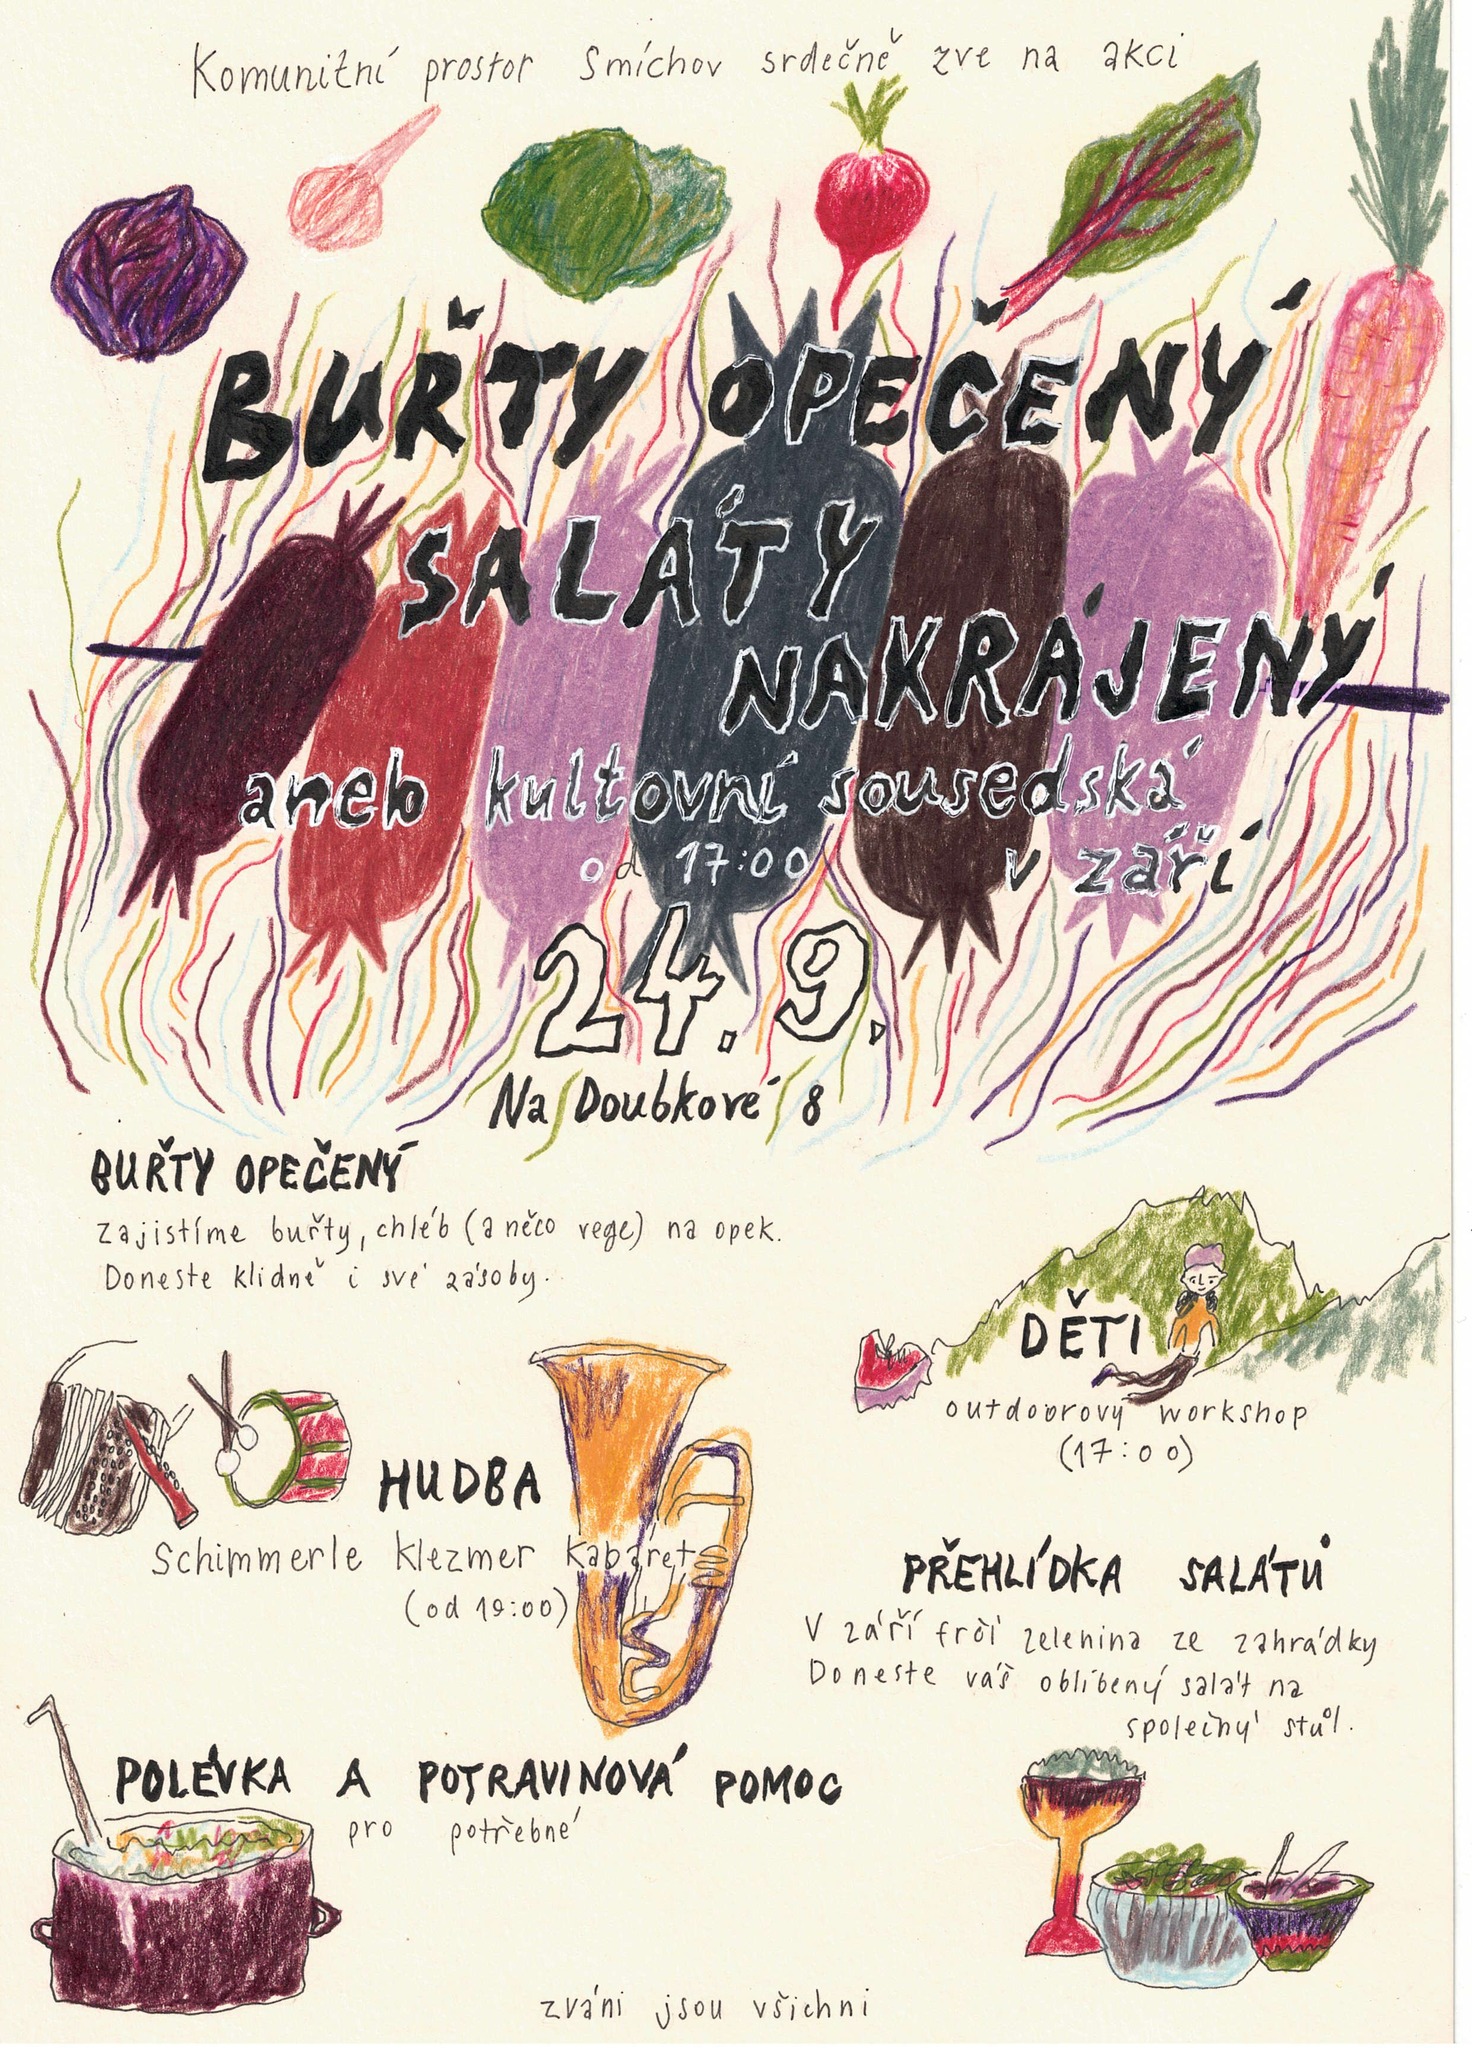 Komunitní prostor Smíchov srdečně zve na akci
BUŘTY OPEČENÝ
SALÁTY
NAKRÁJENÝ
aneb kultovní sousedská
od 17:00 v září
24. 9.
Na Doubkové 8
BUŘTY OPEČENÝ
Zajistíme buřty, chléb (a něco vege) na opek.
Doneste klidně i své zásoby.
DĚTI
outdoorový workshop
(17:00)
HUDBA
Schimmerle Klezmer Kabaret
(od 19:00)
PŘEHLÍDKA SALÁTŮ
V září frčí zelenina ze zahrádky
Doneste váš oblíbený salát na
společný stůl.
POLÉVKA A POTRAVINOVÁ POMOC
pro potřebné
zváni jsou všichni